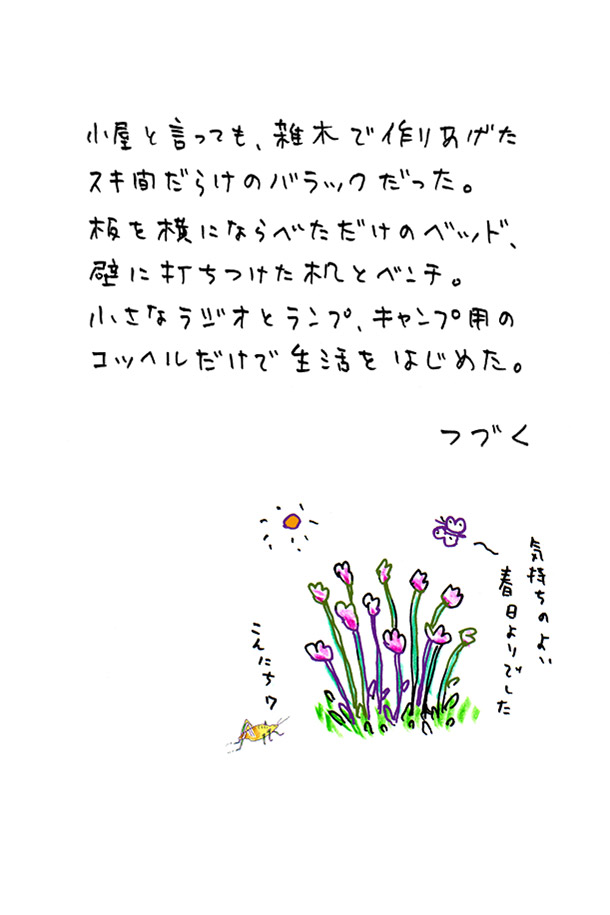 小屋と言っても、雑木で作りあげた
スキ間だらけのバラックだった。
板を横にならべただけのベッド、
壁に打ちつけた机とベンチ。
小さなラジオとランプ、キャンプ用の
コッヘルだけで生活をはじめた。
つづく
気持ちのよい
春日よりでした
こんにちワ